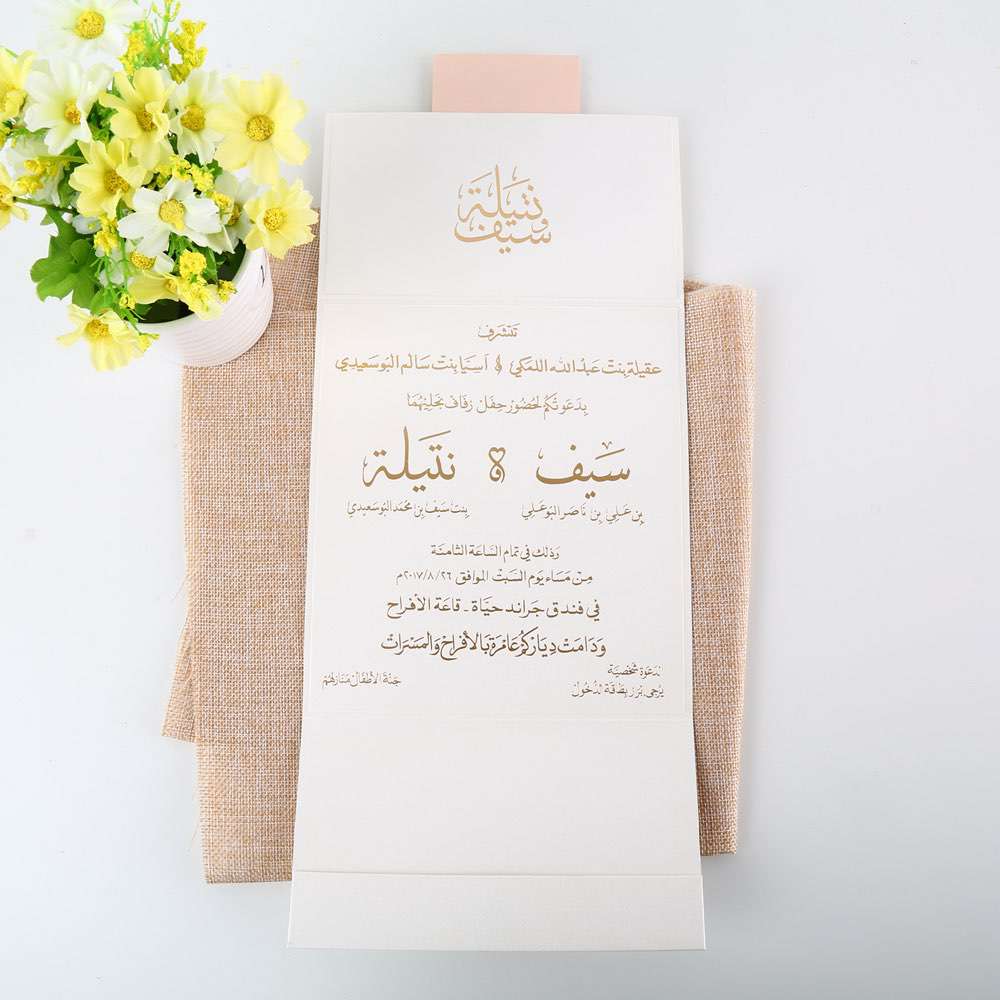 نتيلة
و
سيف
تتشرف
عقيلة بنت عبدالله اللمكي & آسيا بنت سالم البوسعيدي
بدعوتكم لحضور حفل زفاف نجليهما
سيف & نتيلة
بن علي بن ناصر البوعلي بنت سيف بن محمد البوسعيدي
وذلك في تمام الساعة الثامنة
من مساء يوم السبت الموافق ٢٠١٧/٨/٢٦م
في فندق جراند حياة - قاعة الأفراح
ودامت دياركم عامرة بالأفراح والمسرات
لدعوة شخصية
يرجى برز بطاقة لدخول جنة الأطفال منازلهم